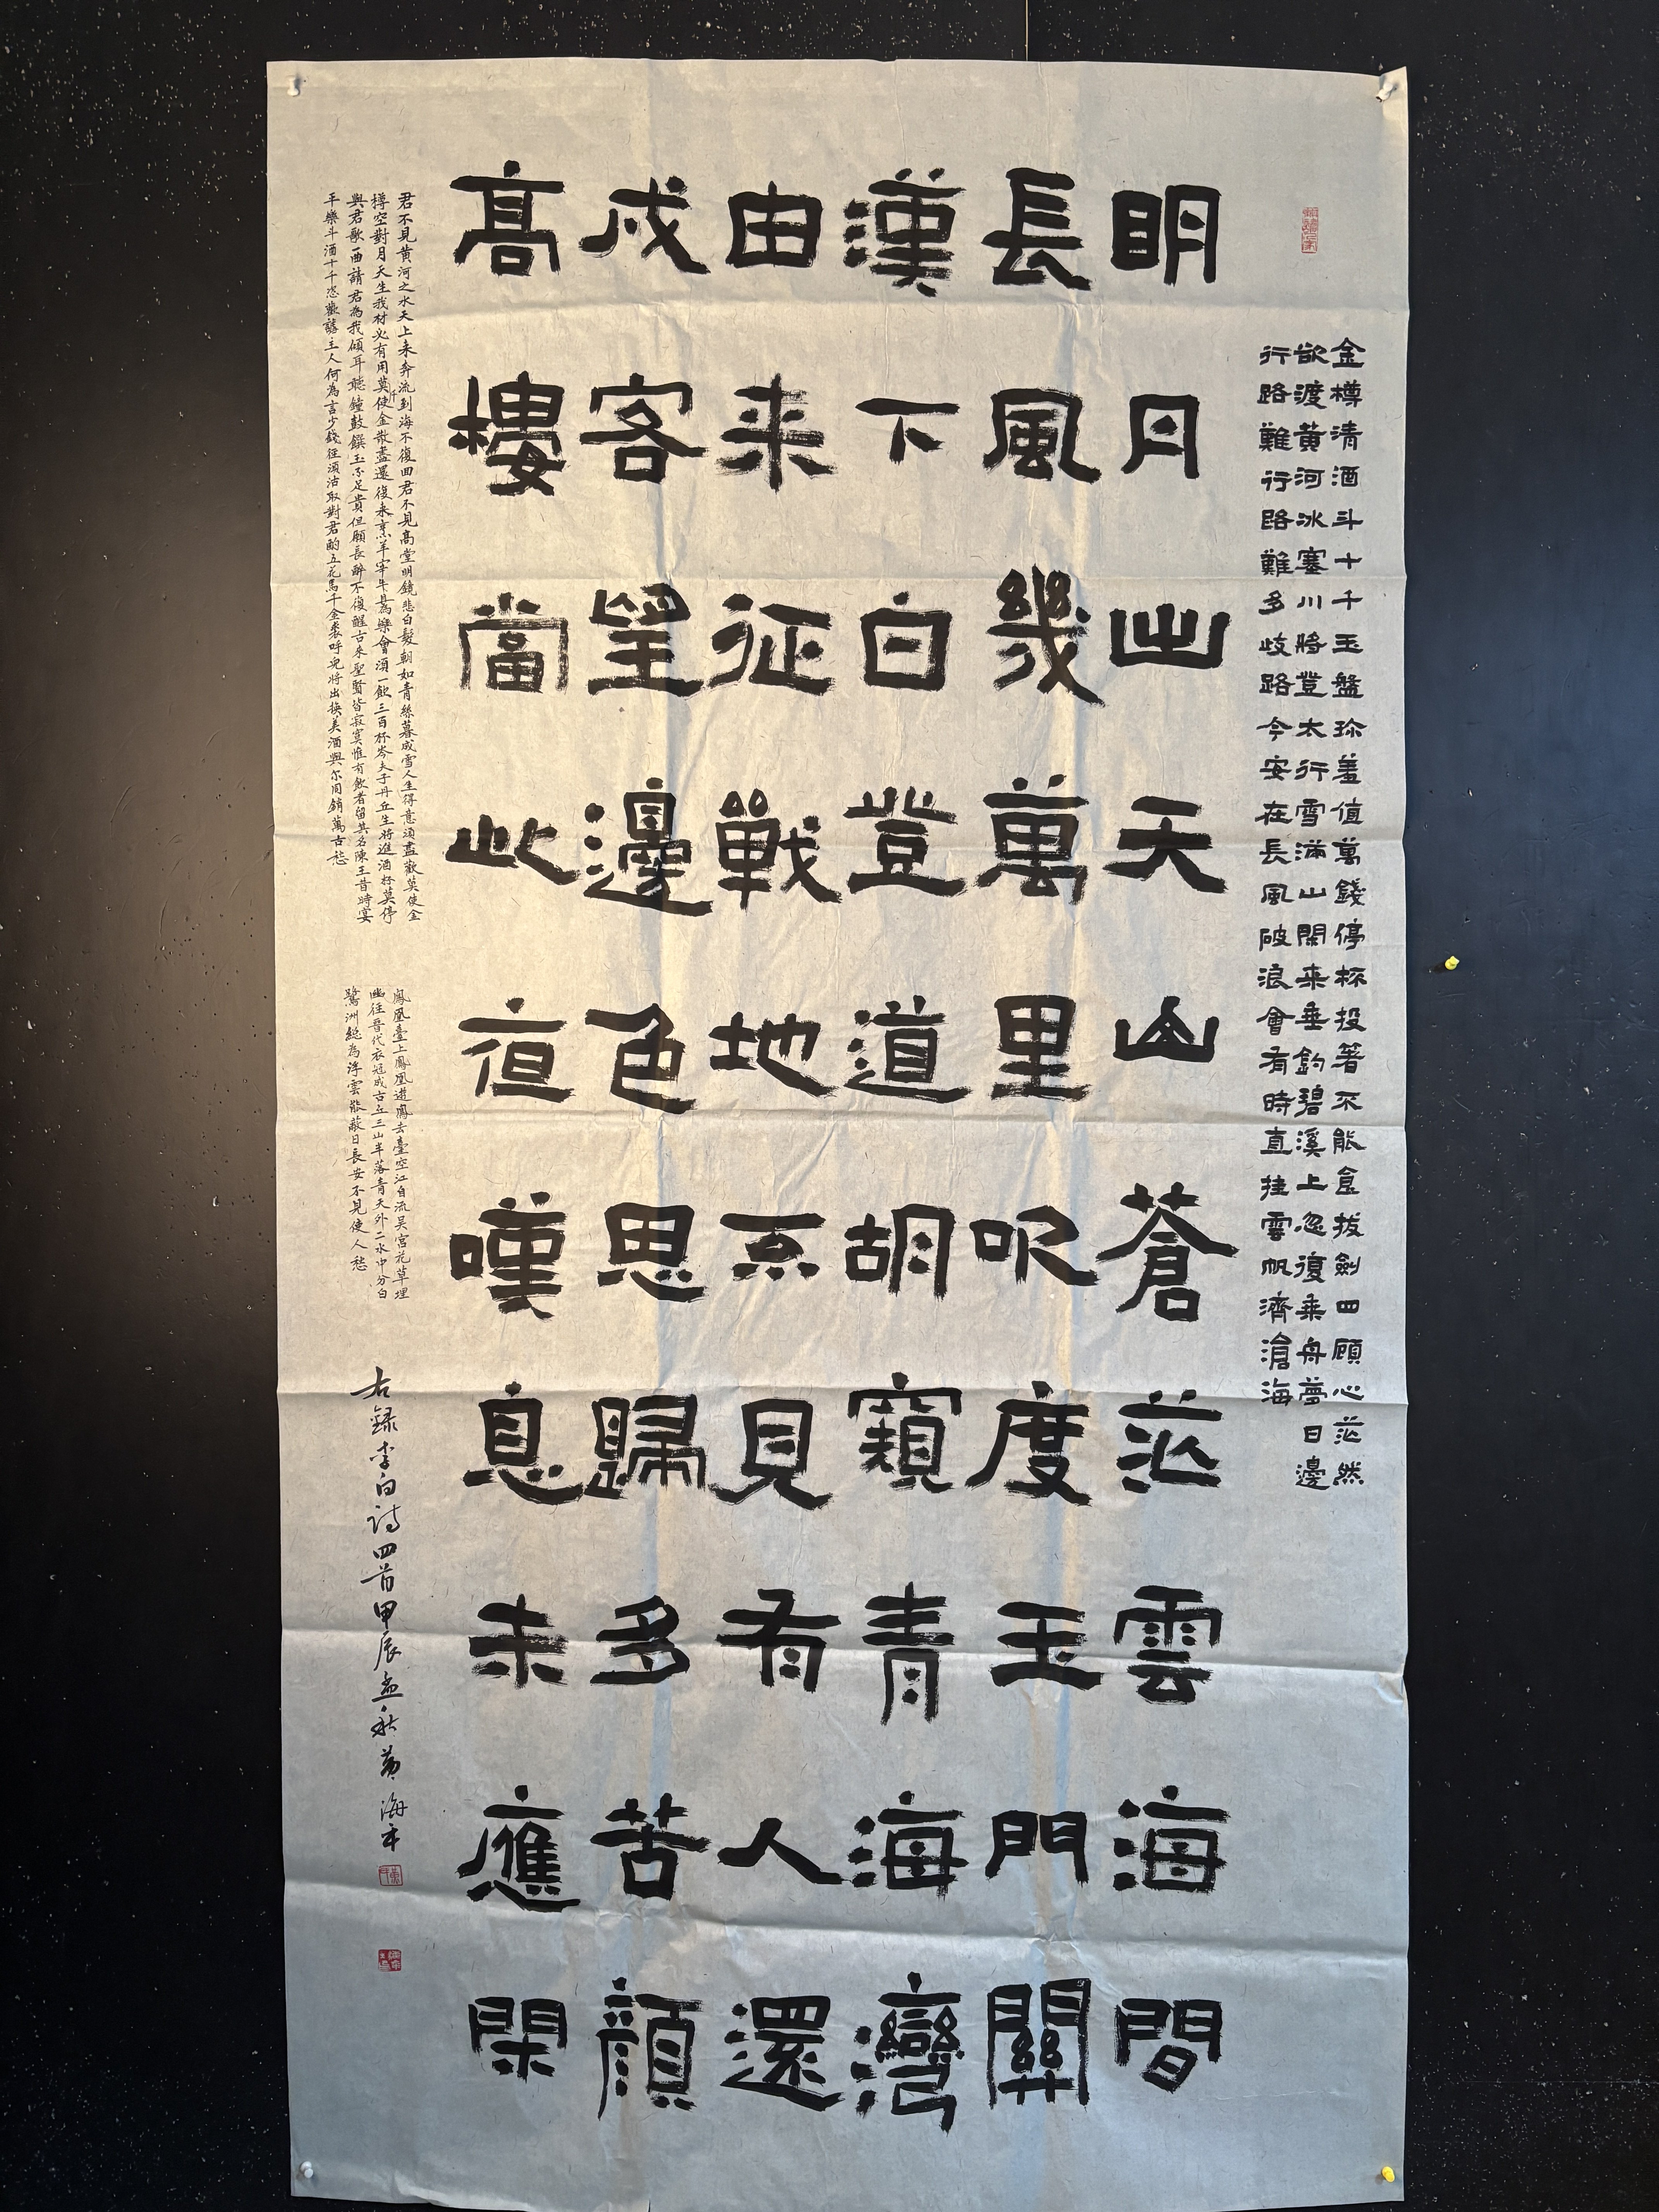 金樽清酒斗十千玉盤珎羞值萬錢停杯投箸不能食拔劍四顧心茫然
欲渡黃河冰塞川將登太行雪滿山閑来垂釣碧溪上忽復乘舟夢日邊
行路難行路難多歧路今安在長風破浪會有時直挂雲帆濟滄海
明月出天山蒼茫雲海間
長風幾萬里吹度玉門關
漢下白登道胡窺青海灣
由来征戰地不見有人還
戍客望邊色思歸多苦顏
高樓當此夜嘆息未應閑
君不見黃河之水天上来奔流到海不復回君不見高堂明鏡悲白髮朝如青絲暮成雪人生得意須盡歡莫使金
樽空對月天生我材必有用莫使金散盡還復来烹羊宰牛且為樂會須一飲三百杯岑夫子丹丘生將進酒杯莫停
與君歌一曲請君為我傾耳聽鐘鼓饌玉不足貴但願長醉不復醒古来聖賢皆寂寞惟有飲者留其名陳王昔時宴
平樂斗酒十千恣歡謔主人何為言少錢徑須沽取對君酌五花馬千金裘呼兒將出換美酒與尔同銷萬古愁
鳳凰臺上鳳凰遊鳳去臺空江自流吳宮花草埋
幽徑晉代衣冠成古丘三山半落青天外二水中分白
鷺洲總為浮雲能蔽日長安不見使人愁
右録李白詩四首甲辰孟秋黃海平